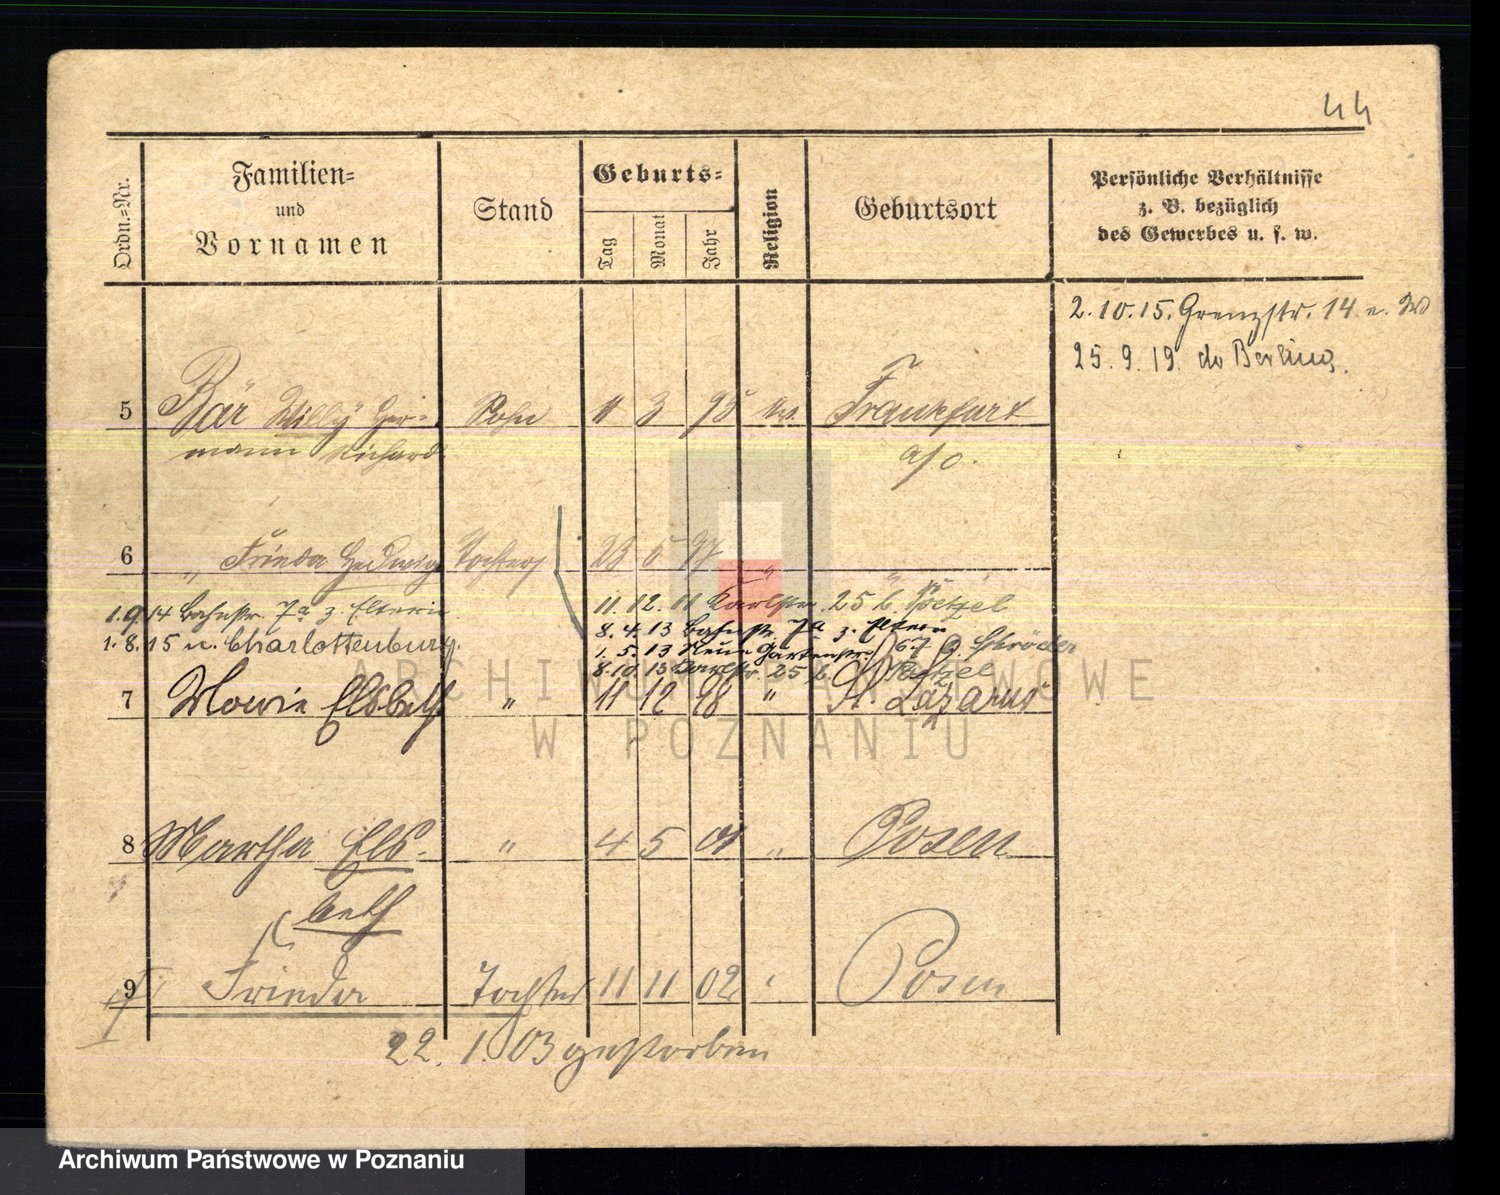 44
Ordn.-Nr.
Familien-
und
Vornamen
Stand
Geburts-
Tag
Monat
Jahr
Religion
Geburtsort
Persönliche Verhältnisse
z. B. bezüglich
des Gewerbes u. s. w.
2.10.15. Grenzstr. 14
25.9.19. do Berlin
5 Bär Willy Her-
mann Richard
Sohn 11 3 95 ev. Frankfurt
a/O.
6 " Frieda Hedwig Tochter 23 5 97 " "
1.9.14 Bahnstr. 7a z. Eltern
1.8.15 n. Charlottenburg.
11.12.11 Karlstr. 25 b. Pötzel
8.4.13 Bahnstr. 7a z. Eltern
1.5.13 Neue Gartenstr. 67 b. Schröder
8.10.13 Karlstr. 25 b. Pötzel
7 Marie Elsbeth " 11 12 98 " St. Lazarus
8 Martha Els-
beth
" 4 5 01 " Posen
9 Frieda Tochter 11 11 02 " Posen
22.1.03 gestorben
ARCHIWUM PAŃSTWOWE
W POZNANIU
Archiwum Państwowe w Poznaniu